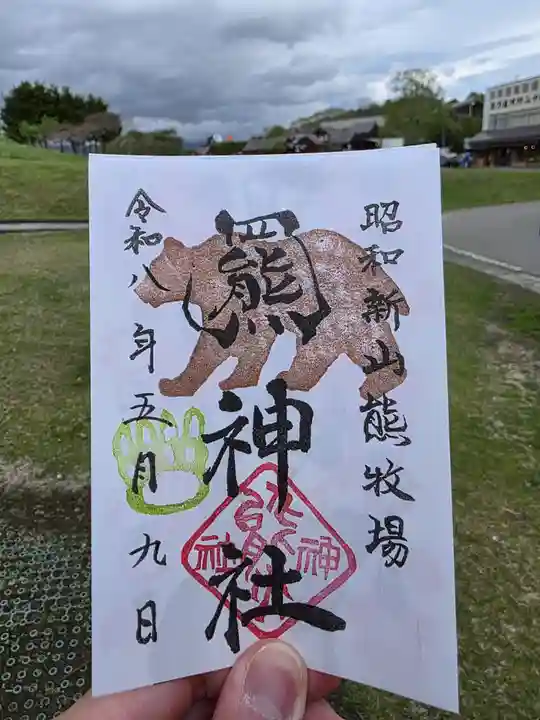 昭和新山熊牧場
羆神社
令和八年五月九日
神社